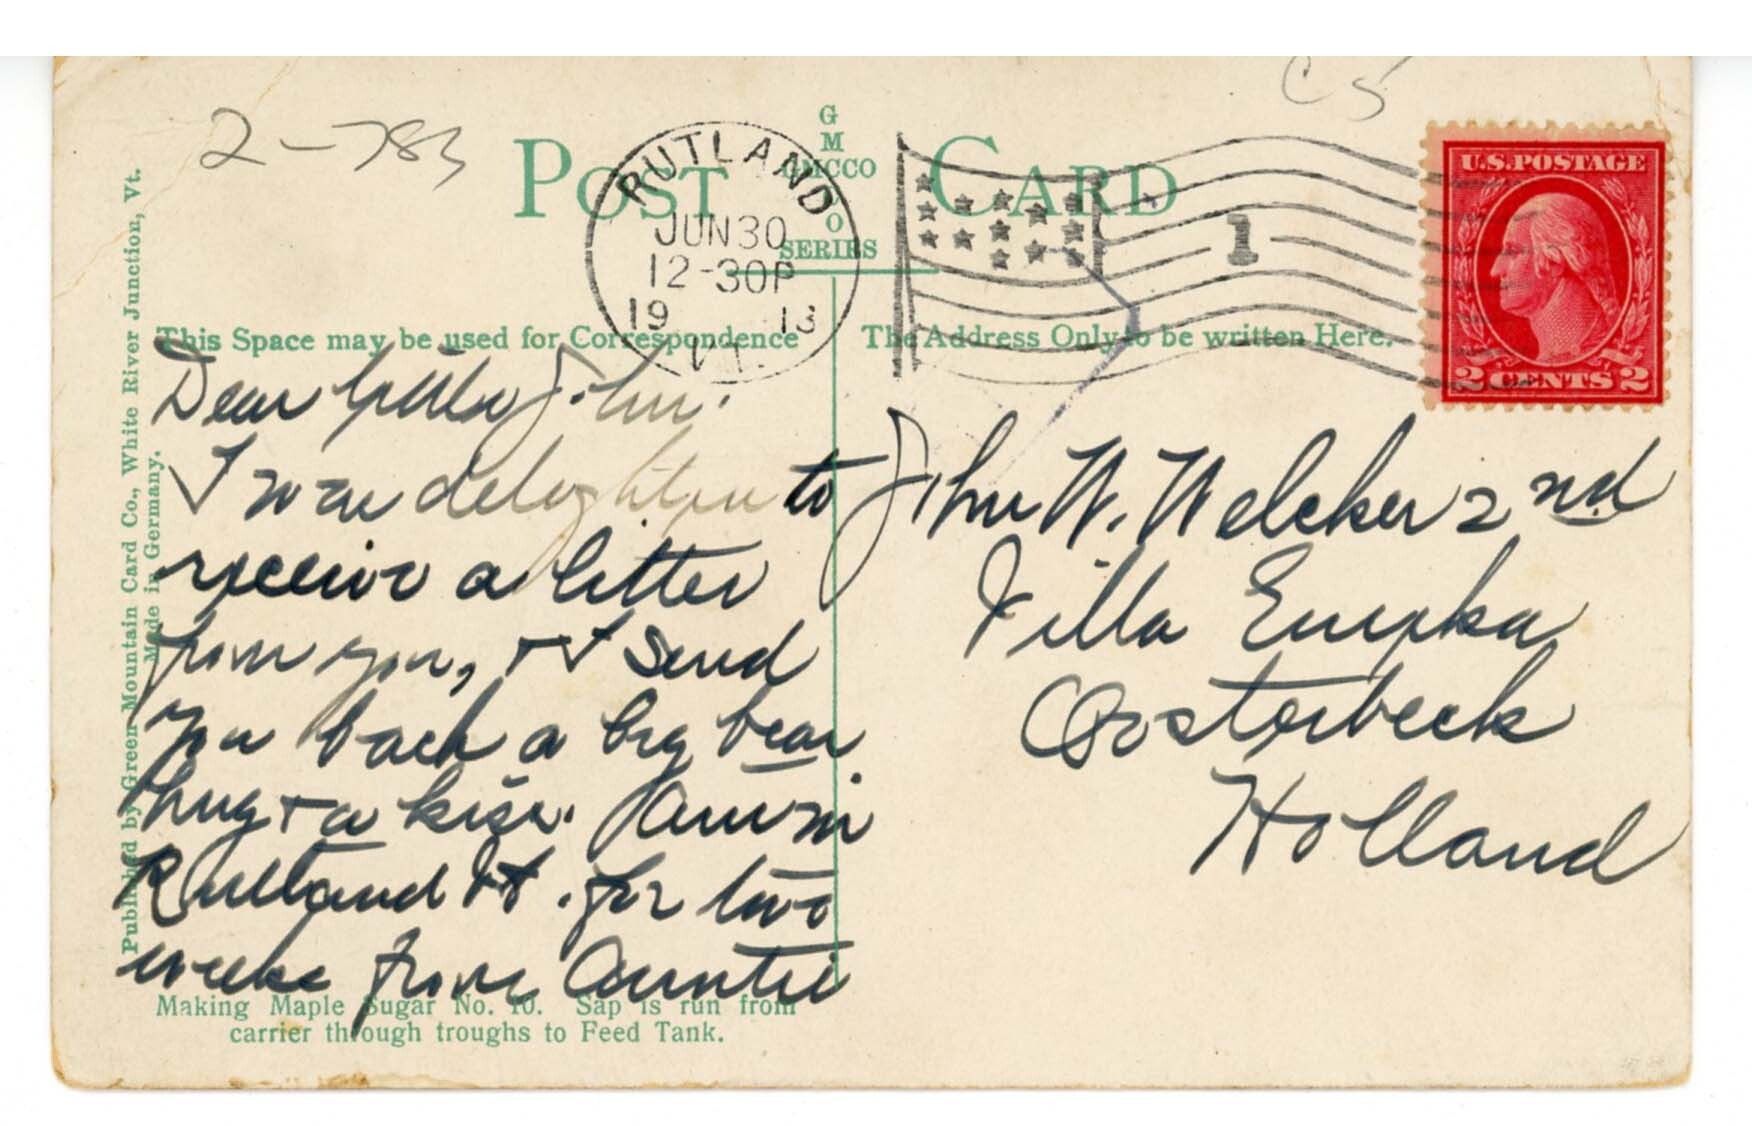 C5
2-783
POST CARD
G
M
GMCCO
C
O
SERIES
RUTLAND
JUN 30
12-30P
19 13
VT.
1
U.S. POSTAGE
2 CENTS 2
This Space may be used for Correspondence
The Address Only to be written Here.
Published by Green Mountain Card Co., White River Junction, Vt.
Made in Germany.
Dear little John.
I was delighted to
receive a letter
from you, + I send
you back a big bear
hug + a kiss. Am in
Rutland Vt. for two
weeks from Auntie
John W. Welcker 2nd
Villa
Oosterbeek
Holland
Making Maple Sugar No. 10. Sap is run from
carrier through troughs to Feed Tank.